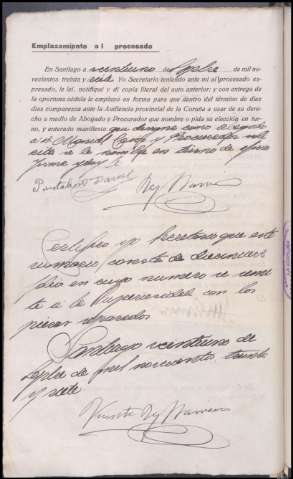 Emplazamiento al procesado
En Santiago a veintiuno de de mil no-
vecientos treinta y siete Yo Secretario teniendo ante mi al procesado
expresado, le leí, notifiqué y di copia literal del auto anterior; y con entrega de
la oportuna cédula le emplazo en forma para que dentro del término de diez
días comparezca ante la Audiencia provincial de la Coruña a usar de su dere-
cho a medio de Abogado y Procurador que nombre o pida su elección en tur-
no, y enterado manifiesta: que designa como Abogado
a D. Miguel y Procurador
se le nombre en turno de oficio
firma y doy fe
Rey
Certifico yo Secretario que este
sumario consta de
folio en cuyo número se remi-
te a la Superioridad con las
piezas separadas
Santiago veintiuno de
de mil novecientos treinta
y siete
Vicente Rey